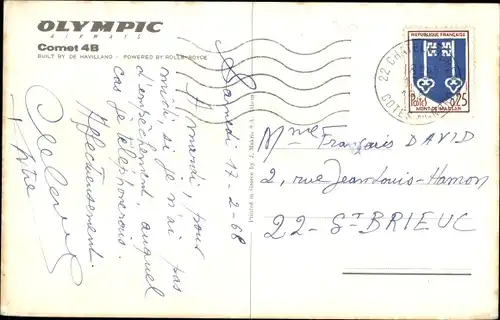 OLYMPIC
AIRWAYS
Comet 4B
BUILT BY DE HAVILLAND - POWERED BY ROLLS-ROYCE
Samedi 17-2-68
A mardi, pour
midi si je n'ai pas
d'empêchement, auquel
cas je téléphonerais.
Affectueusement.
Printed in Greece by
REPUBLIQUE FRANÇAISE
POSTES 0,25
MONT-DE-MARSAN
22
COTES
Mme François DAVID
2, rue Jean-Louis-Hamon
22-ST-BRIEUC